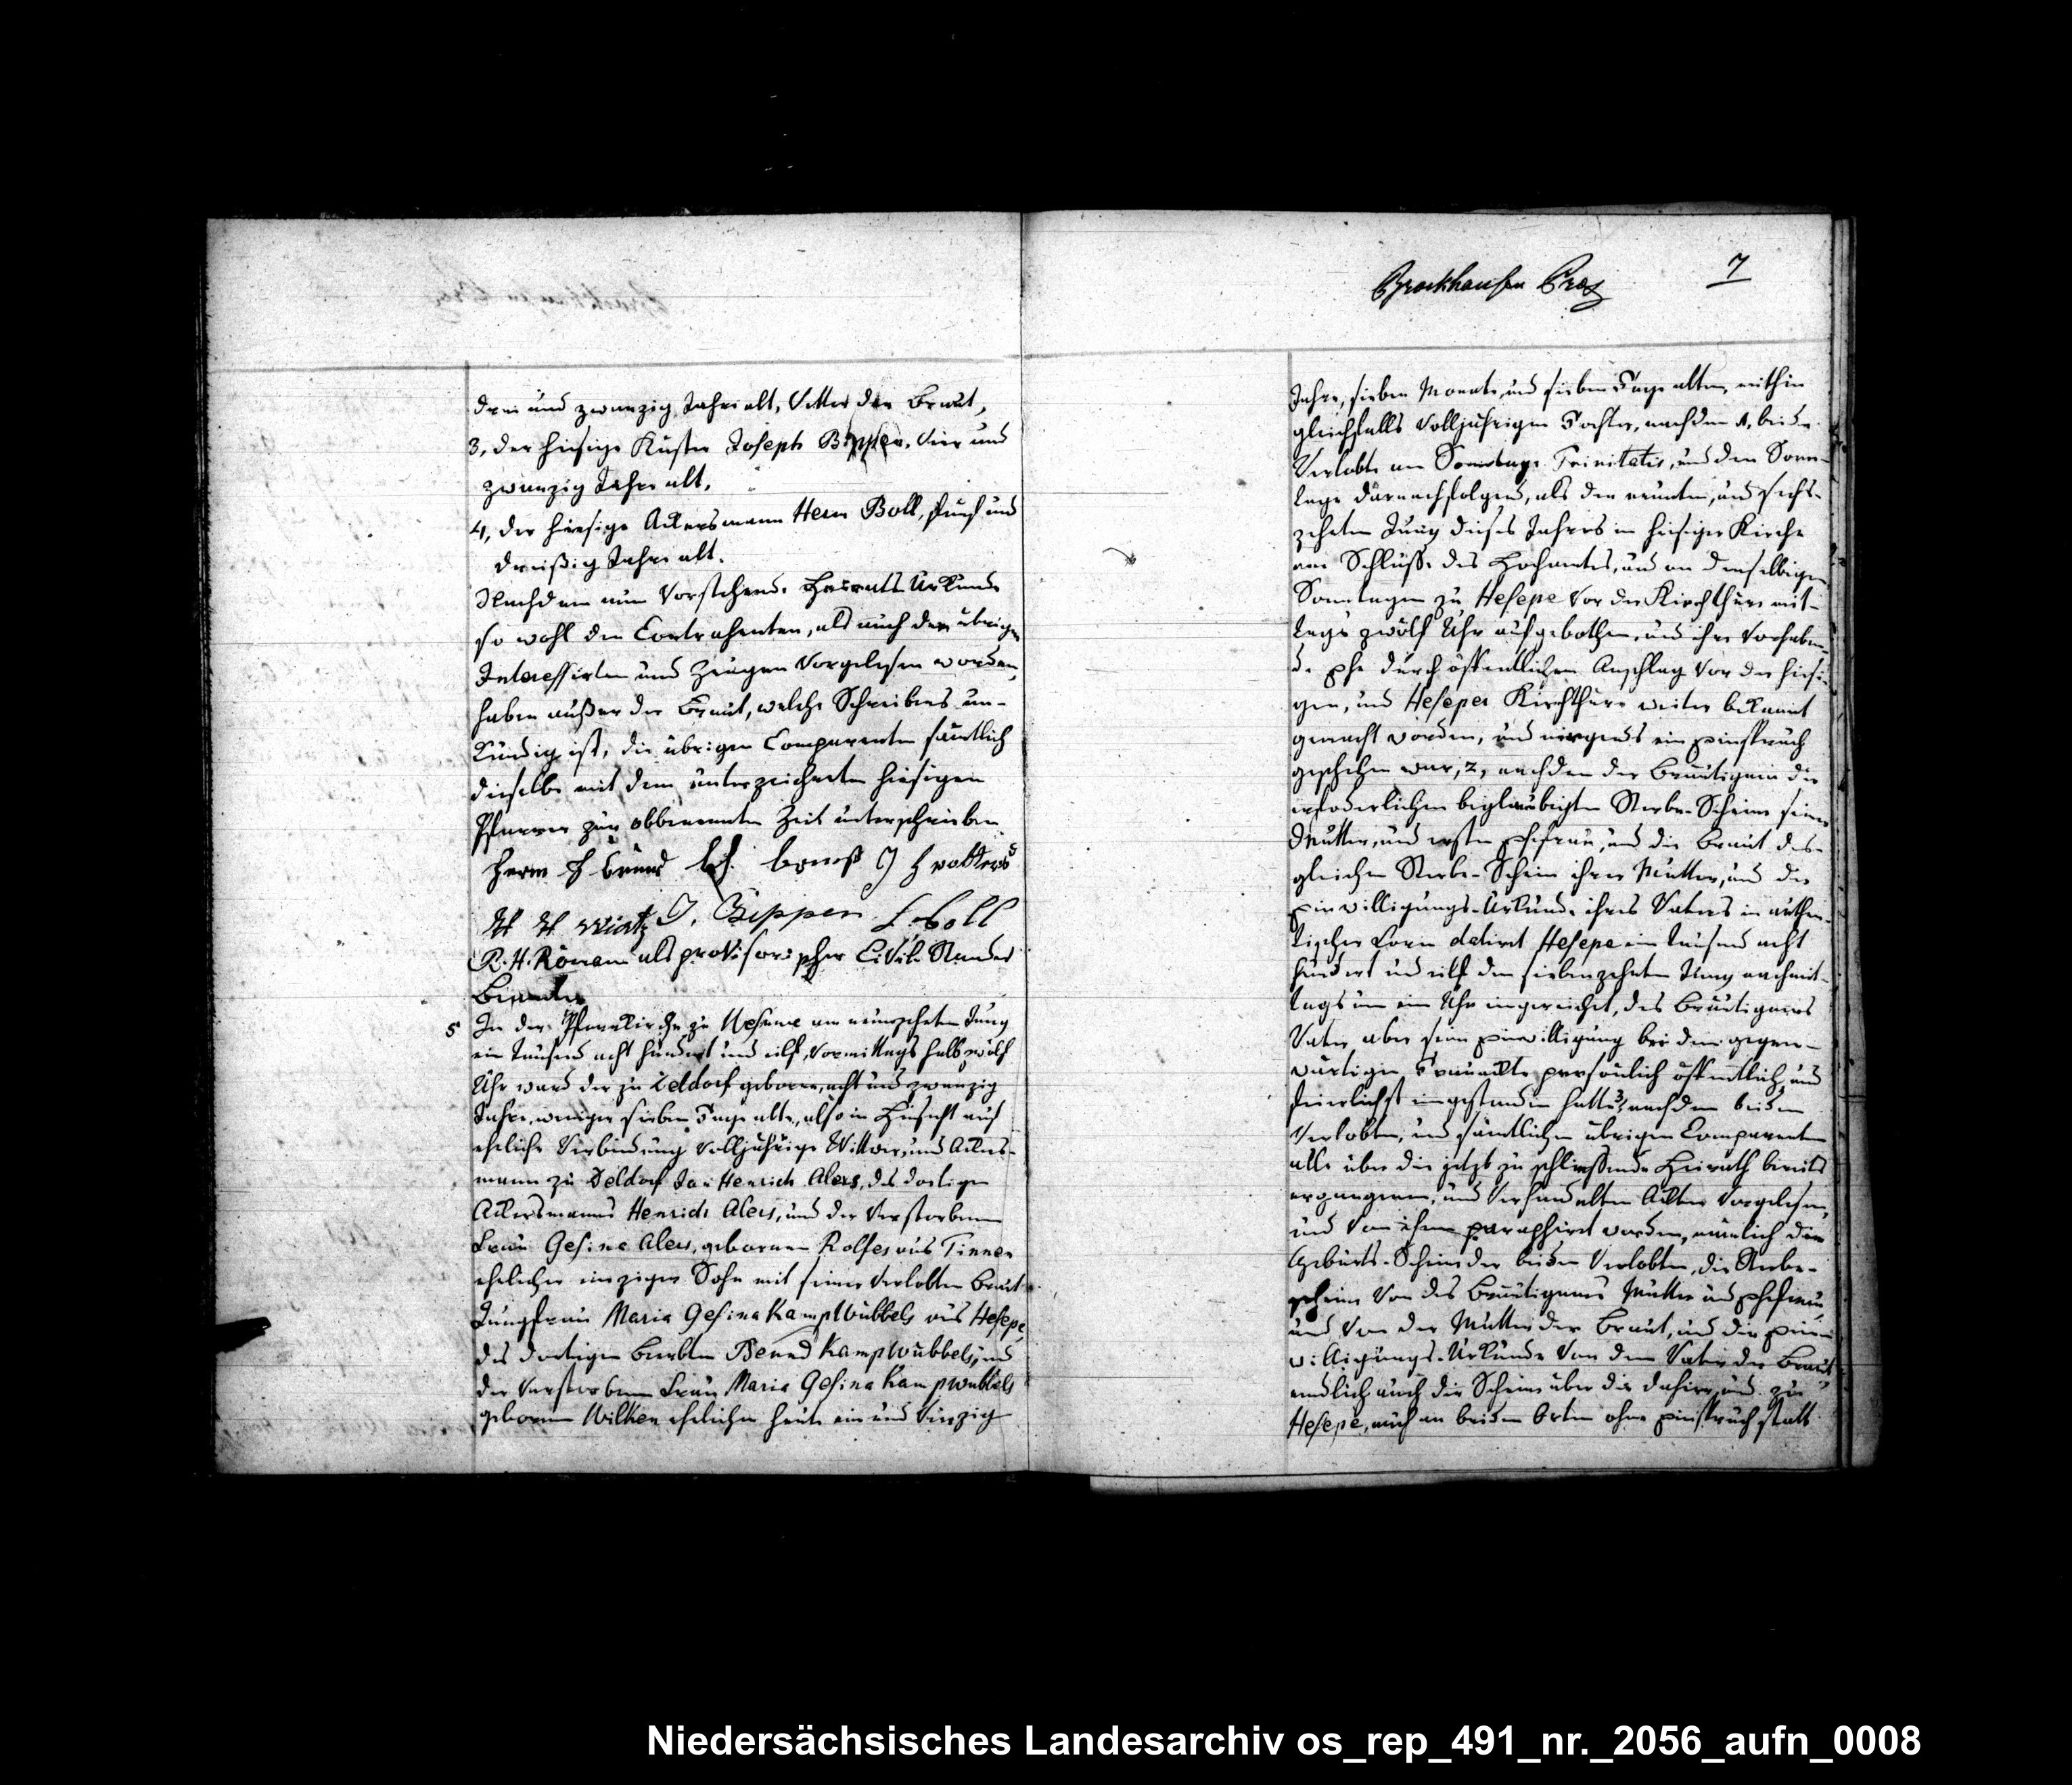 drei und zwanzig Jahre alt, Vetter der Braut,
3, der hiesige Küster Joseph Bippen, vier und
zwanzig Jahre alt,
4, der hiesige Ackersmann Herm Boll, fünf und
dreißig Jahre alt.
Nachdem nun vorstehende Heirats Urkunde
so wohl den Contrahenten, als auch den übrigen
Interessirten und Zeugen vorgelesen worden,
haben außer der Braut, welche Schreibens un-
kündig ist, die übrigen Comparenten sämtlich
dieselbe mit dem unterzeichneten hiesigen
Pfarrer zur obbenannten Zeit unterschrieben
Herm H
H H J. Bippen Boll
R. H. als provisorischer Civil-Standes
Beamter
5 In der Pfarrkirche zu am neunzehnten Juny
ein tausend acht hundert und eilf, Vormittags halb zwölf
Uhr ward der zu Teldorf geborne, acht und zwanzig
Jahre, weniger sieben Tage alte, also in Hinsicht auf
eheliche Verbindung volljährige Wittwer, und Ackers-
mann zu Jan Henrich Alers, des dortigen
Ackersmanns Henrich Alers, und der verstorbenen
Frau Gesina Alers, gebornen Rolfes aus Tinnen
ehelicher einziger Sohn mit seiner verlobten Braut
Jungfrau Maria Gesina Kampwübbels aus Hesepe,
des dortigen Bernd Kampwübbels, und
der verstorbenen Frau Maria Gesina Kampwübbels
gebornen Wilken ehelichen heute ein und vierzig
Brockhausen Pras 7
Jahre, sieben Monate, und sieben Tage alten, mithin
gleichfalls volljährigen Tochter, nachdem 1, beide
Verlobte am Sonntage Trinitatis, und den Sonn-
tage darnachfolgend, als den neunten, und sechs-
zehnten Juny dieses Jahres in hiesiger Kirche
am Schluße des Hochamtes, und an denselbigen
Sonntagen zu Hesepe vor der Kirchthüre mit-
tags zwölf Uhr aufgebothen, und ihre vorhaben-
de Ehe durch öffentlichen Anschlag vor der hiesi-
gen, und Heseper Kirchthüre weiter bekannt
gemacht worden, und nirgends ein Einspruch
geschehen war, 2, nachdem der Bräutigam die
erforderlichen beglaubigten Sterbe-Scheine seiner
Mutter, und ersten Ehefrau, und die Braut des-
gleichen Sterbe-Schein ihrer Mutter, und die
Einwilligungs-Urkunde ihres Vaters in authen-
tischer Form datirt Hesepe ein tausend acht
hundert und eilf den siebenzehnten Juny nachmit-
tags um ein Uhr eingereicht, des Bräutigams
Vater aber seine Einwilligung bei dem gegen-
wärtigen Trauakte persönlich öffentlich, und
feierlichst eingestanden hatte, 3, nachdem beiden
Verlobten, und sämtlichen übrigen Comparenten
alle über die jetzt zu schließende Heirath bereits
ergangenen, und verhandelten Akten vorgelesen,
und von ihnen paraphirt worden, nämlich die
Geburts-Scheine der beiden Verlobten, die Sterbe-
scheine von des Bräutigams Mutter und Ehefrau
und von der Mutter der Braut, und die Ein-
willigungs-Urkunde von dem Vater der Braut
endlich auch die Scheine über die dahier, und zu
Hesepe, auch an beiden Orten ohne Einspruch statt
Niedersächsisches Landesarchiv os_rep_491_nr._2056_aufn_0008